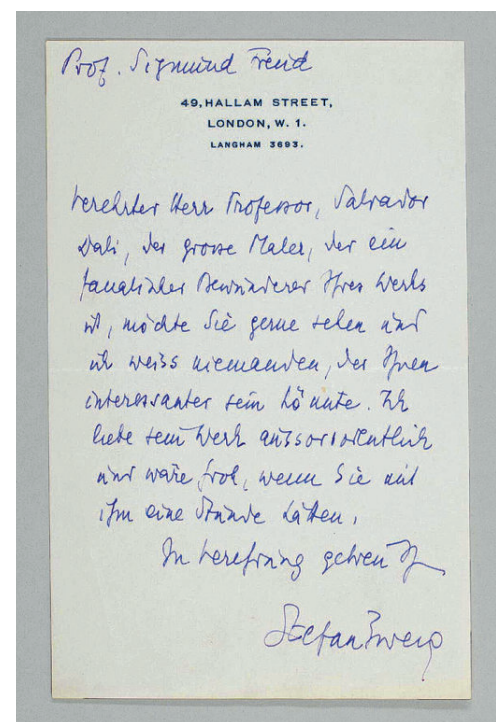 Prof. Sigmund Freud
49, HALLAM STREET,
LONDON, W. 1.
LANGHAM 3693.
Verehrter Herr Professor, Salvador
Dali, der grosse Maler, der ein
fanatischer Bewunderer Ihres Werks
ist, möchte Sie gerne sehen und
ich weiss niemanden, der Ihnen
interessanter sein könnte. Ich
liebe sein Werk ausserordentlich
und wäre froh, wenn Sie mit
ihm eine Stunde hätten.
In Verehrung getreu Ihr
Stefan Zweig